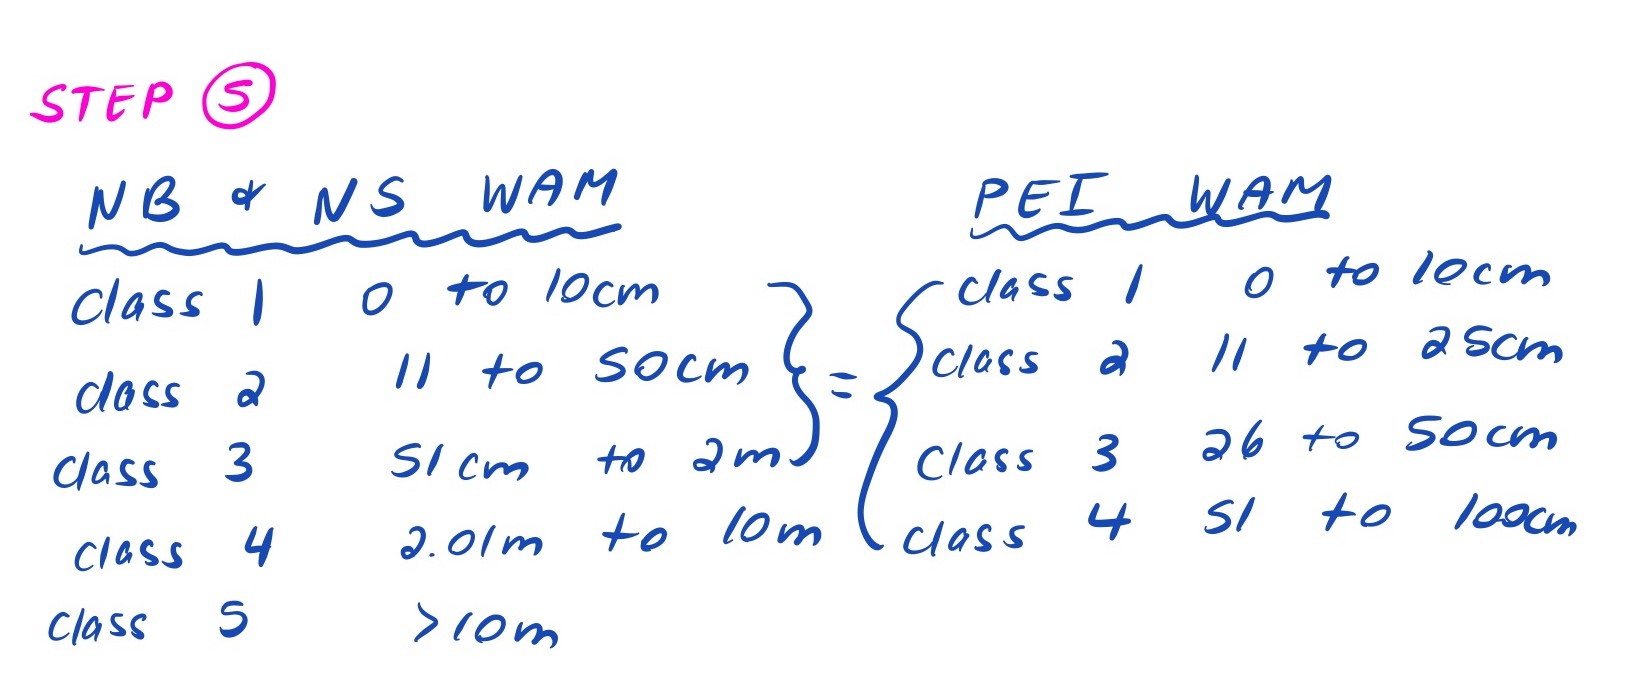 STEP 5
NB & NS WAM
class 1 0 to 10cm
class 2 11 to 50cm
class 3 51cm to 2m
class 4 2.01m to 10m
class 5 >10m
=
PEI WAM
class 1 0 to 10cm
class 2 11 to 25cm
class 3 26 to 50cm
class 4 51 to 100cm